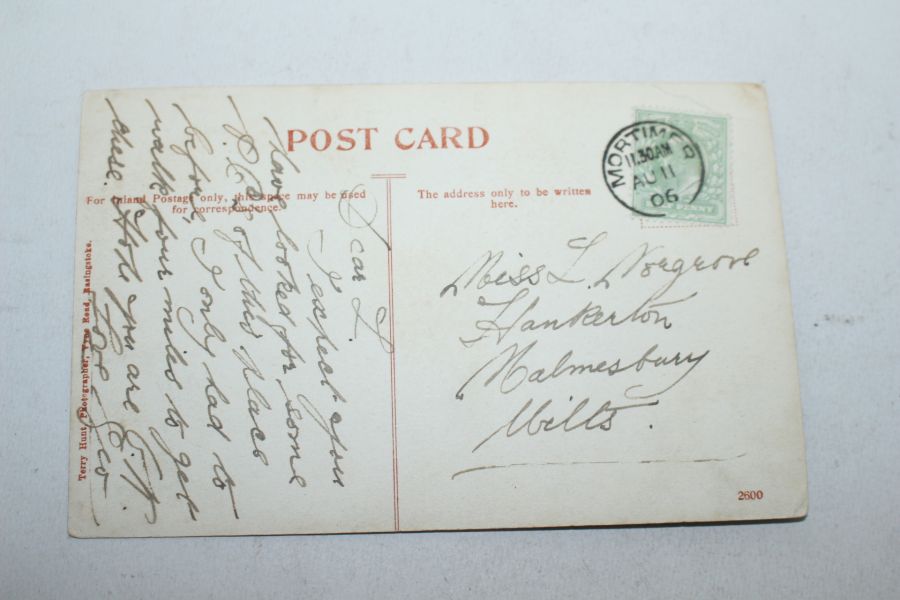 POST CARD
For Inland Postage only, this space may be used
for correspondence.
The address only to be written
here.
MORTIMER
11.30AM
AU 11
06
Miss L Norgrove
Hankerton
Malmesbury
Wilts.
Dear L.
I expect you
have looked for some
P.Cs of this place
before, I only had to
walk four miles to get
these. Hope you are
Terry Hunt, Photographer, Vyne Road, Basingstoke.
2600